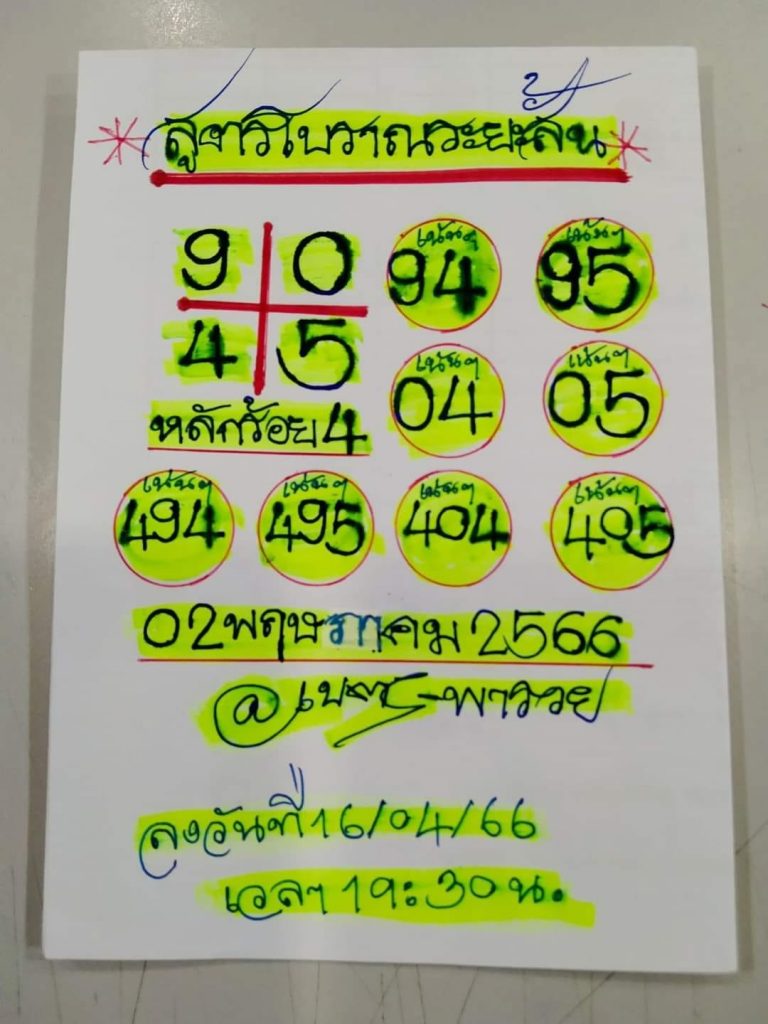 สูตรโบราณระยะสั้น
9 0 เน้นๆ 94 เน้นๆ 95
4 5 เน้นๆ 04 เน้นๆ 05
หลักร้อย 4
เน้นๆ 494 เน้นๆ 495 เน้นๆ 404 เน้นๆ 405
02 พฤษภาคม 2566
@ พารวย
ลงวันที่ 16/04/66
เวลา 19:30 น.